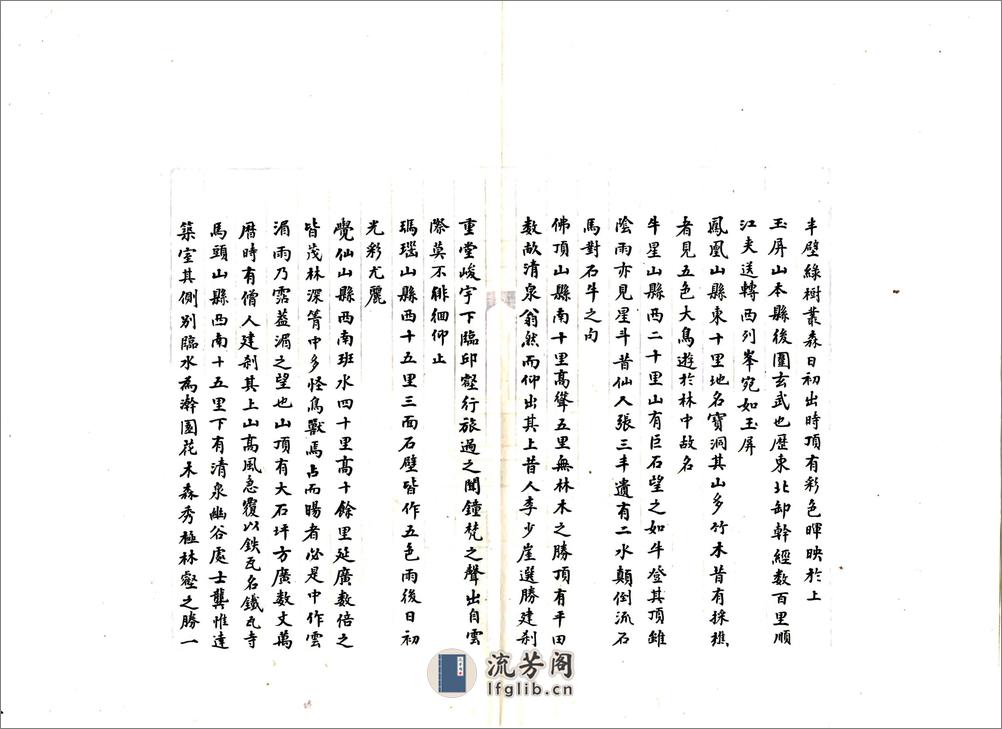 半壁綠樹叢森日初出時頂有彩色暉映於上
玉屏山本縣後圍玄武也歷東北卸幹經数百里順
江夹送轉西列峯宛如玉屏
鳳凰山縣東十里地名寶洞其山多竹木昔有採樵
者見五色大鳥遊於林中故名
牛星山縣西二十里山有巨石望之如牛登其頂雖
陰雨亦見星斗昔仙人張三丰遺有二水顛倒流石
馬對石牛之句
佛頂山縣南十里高聳五里無林木之勝頂有平田
数畝清泉翁然而仰出其上昔人李少崖選勝建刹
重堂峻宇下臨邱壑行旅過之聞鐘梵之聲出自雲
際莫不徘徊仰止
瑪瑙山縣西十五里三面石壁皆作五色雨後日初
光彩尤麗
覺仙山縣西南班水四十里高十餘里延廣数倍之
皆茂林深箐中多怪鳥獸焉占雨暘者必是中作雲
湄雨乃霑葢湄之望也山頂有大石坪方廣数丈萬
曆時有僧人建刹其上山高風急覆以鉄瓦名鐵瓦寺
馬頭山縣西南十五里下有清泉幽谷處士龔惟達
築室其側别臨水為濣園花木森秀極林壑之勝一
流芳阁
lfglib.cn